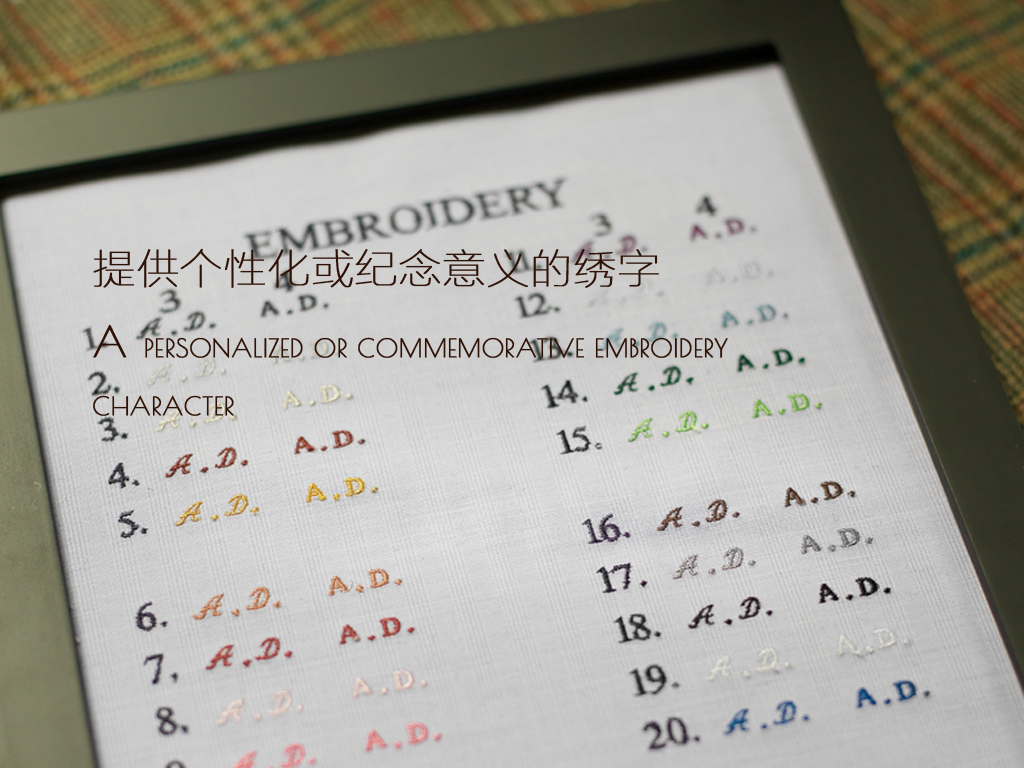 EMBROIDERY
3 4
A.D. A.D.
提供个性化或纪念意义的绣字
A PERSONALIZED OR COMMEMORATIVE EMBROIDERY
CHARACTER
3 4
1. A.D. A.D.
2. A.D. A.D.
3. A.D. A.D.
4. A.D. A.D.
5. A.D. A.D.
6. A.D. A.D.
7. A.D. A.D.
8. A.D. A.D.
A.D. A.D.
12. A.D. A.D.
13. A.D. A.D.
14. A.D. A.D.
15. A.D. A.D.
16. A.D. A.D.
17. A.D. A.D.
18. A.D. A.D.
19. A.D. A.D.
20. A.D. A.D.